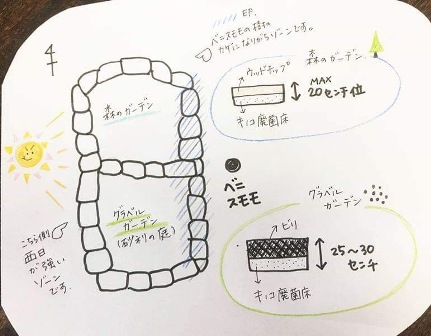 印。
ベニスモモの枝の
カゲになりがちゾーンです。
森のガーデン
ウッドチップ
MAX
20センチ位
キノコ廃菌床
森のガーデン
ベニ
スモモ
グラベル
ガーデン
(砂利の庭)
こちら側
西日
が強い
ゾーン
です。
グラベル
ガーデン
ビリ
25〜30
センチ
キノコ廃菌床